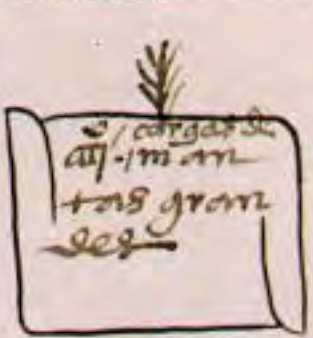 º/ cargas de
iiij ·/ man
tas gran
des